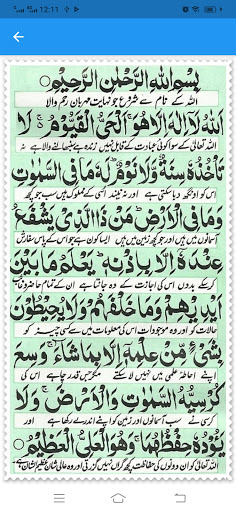 12:11
بِسْمِ اللهِ الرَّحْمٰنِ الرَّحِيْمِ ○
اللہ کے نام سے شروع جو نہایت مہربان رحم والا
اَللهُ لَآ اِلٰهَ اِلَّا هُوَ ۚ اَلْحَيُّ الْقَيُّوْمُ ۚ لَا
اللہ تعالیٰ کے سوا کوئی عبادت کے قابل نہیں زندہ ہے سنبھالنے والا ہے نہ
تَاْخُذُهٗ سِنَةٌ وَّلَا نَوْمٌ ۭ لَهٗ مَا فِي السَّمٰوٰتِ
اس کو اونگھ دبا سکتی ہے اور نہ نیند اسی کے مملوک ہیں سب جو کچھ
وَمَا فِي الْاَرْضِ ۭ مَنْ ذَا الَّذِيْ يَشْفَعُ
آسمانوں میں ہیں اور جو کچھ زمین میں ہیں ایسا کون ہے جو اس کے پاس سفارش
عِنْدَهٗٓ اِلَّا بِاِذْنِهٖ ۭ يَعْلَمُ مَا بَيْنَ
کرسکے بدوں اس کی اجازت کے وہ جانتا ہے ان کے تمام حاضر و غائب
اَيْدِيْهِمْ وَمَا خَلْفَهُمْ ۚ وَلَا يُحِيْطُوْنَ
حالات کو اور وہ موجودات اس کی معلومات میں سے کسی چیز کو
بِشَيْءٍ مِّنْ عِلْمِهٖٓ اِلَّا بِمَا شَآءَ ۚ وَسِعَ
اپنے احاطہ علمی میں نہیں لا سکتے مگر جس قدر چاہے اس کی
كُرْسِيُّهُ السَّمٰوٰتِ وَالْاَرْضَ ۚ وَلَا
کرسی نے سب آسمانوں اور زمین کو اپنے اندر لے رکھا ہے اور
يَـُٔوْدُهٗ حِفْظُهُمَا ۚ وَهُوَ الْعَلِيُّ الْعَظِيْمُ ○
اللہ تعالیٰ کو ان دونوں کی حفاظت کچھ گراں نہیں گزرتی اور وہ عالی شان عظیم الشان ہے